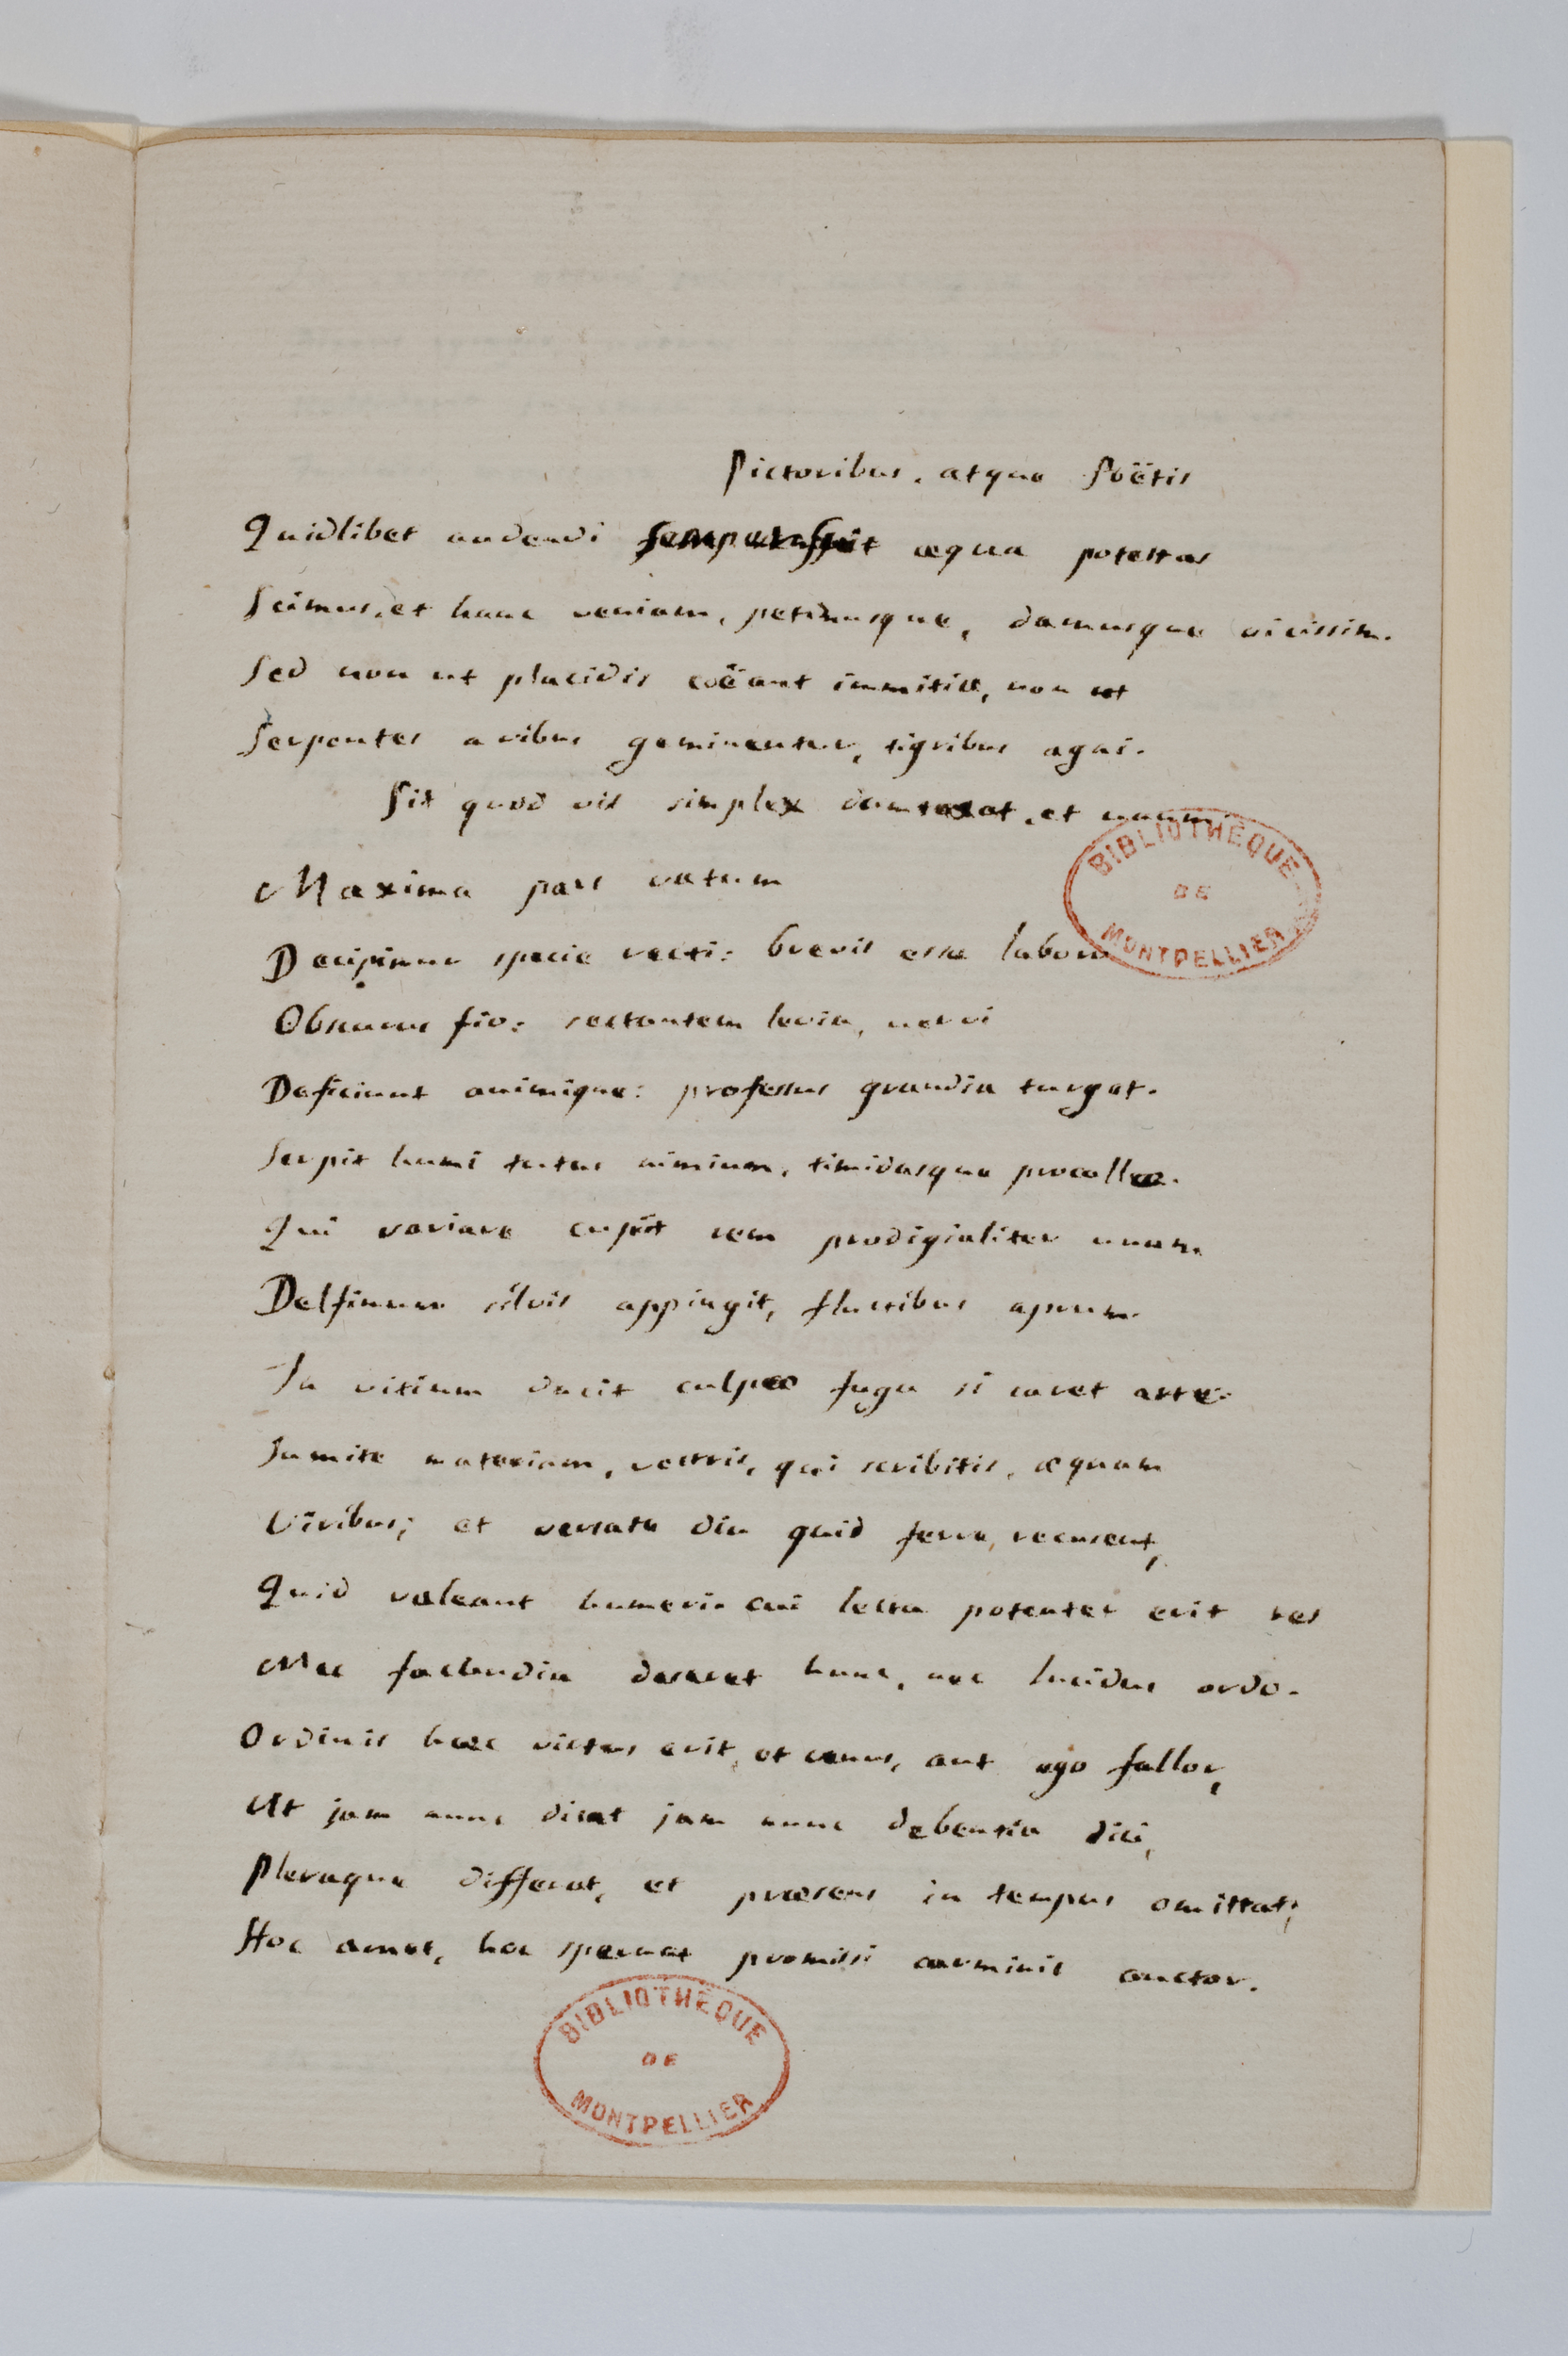 Pictoribus, atque Poëtis
Quidlibet audendi semper fuit æqua potestas
Scimus, et hanc veniam, petimusque, damusque vicissim.
Sed non ut placidis coëant immitia, non ut
Serpentes avibus geminentur, tigribus agni.
Sit quod vis simplex dumtaxat, et unum
Maxima pars vatum
Decipimur specie recti: brevis esse laboro
Obscurus fio: sectantem levia, nervi
Deficiunt animique: professus grandia turget.
Serpit humi tutus nimium, timidusque procellæ.
Qui variare cupit rem prodigialiter unam,
Delfinum silvis appingit, fluctibus aprum.
In vitium ducit culpæ fuga si caret arte.
Sumite materiam, vestris, qui scribitis, æquam
Viribus; et versate diu quid ferre, recusent,
Quid valeant humeri. cui lecta potenter erit res
Nec facundia deseret hunc, nec lucidus ordo.
Ordinis hæc virtus erit, et venus, aut ego fallor,
Ut jam nunc dicat jam nunc debentia dici,
Pleraque differat, et præsens in tempus omittat;
Hoc amet, hoc spernat promissi carminis auctor.
BIBLIOTHÈQUE
DE
MONTPELLIER
BIBLIOTHÈQUE
DE
MONTPELLIER